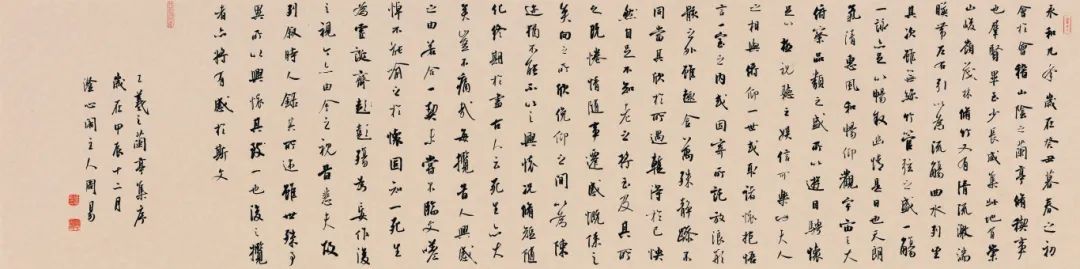 永和九年歲在癸丑暮春之初
會於會稽山陰之蘭亭脩禊事
也羣賢畢至少長咸集此地有崇
山峻嶺茂林脩竹又有清流激湍
暎帶左右引以為流觴曲水列坐
其次雖無絲竹管弦之盛一觴
一詠亦足以暢敘幽情是日也天朗
氣清惠風和暢仰觀宇宙之大
俯察品類之盛所以遊目騁懷
足以極視聽之娛信可樂也夫人
之相與俯仰一世或取諸懷抱悟
言一室之內或因寄所託放浪形
骸之外雖趣舍萬殊靜躁不
同當其欣於所遇暫得於己快
然自足不知老之將至及其所
之既惓情隨事遷感慨係之
矣向之所欣俛仰之間以為陳
迹猶不能不以之興懷況脩短隨
化終期於盡古人云死生亦大
矣豈不痛哉每攬昔人興感
之由若合一契未嘗不臨文嗟
悼不能喻之於懷固知一死生
為虛誕齊彭殤為妄作後
之視今亦由今之視昔悲夫故
列敘時人錄其所述雖世殊事
異所以興懷其致一也後之攬
者亦將有感於斯文
王羲之蘭亭集序
歲在甲辰十二月
澄心閣主人周易